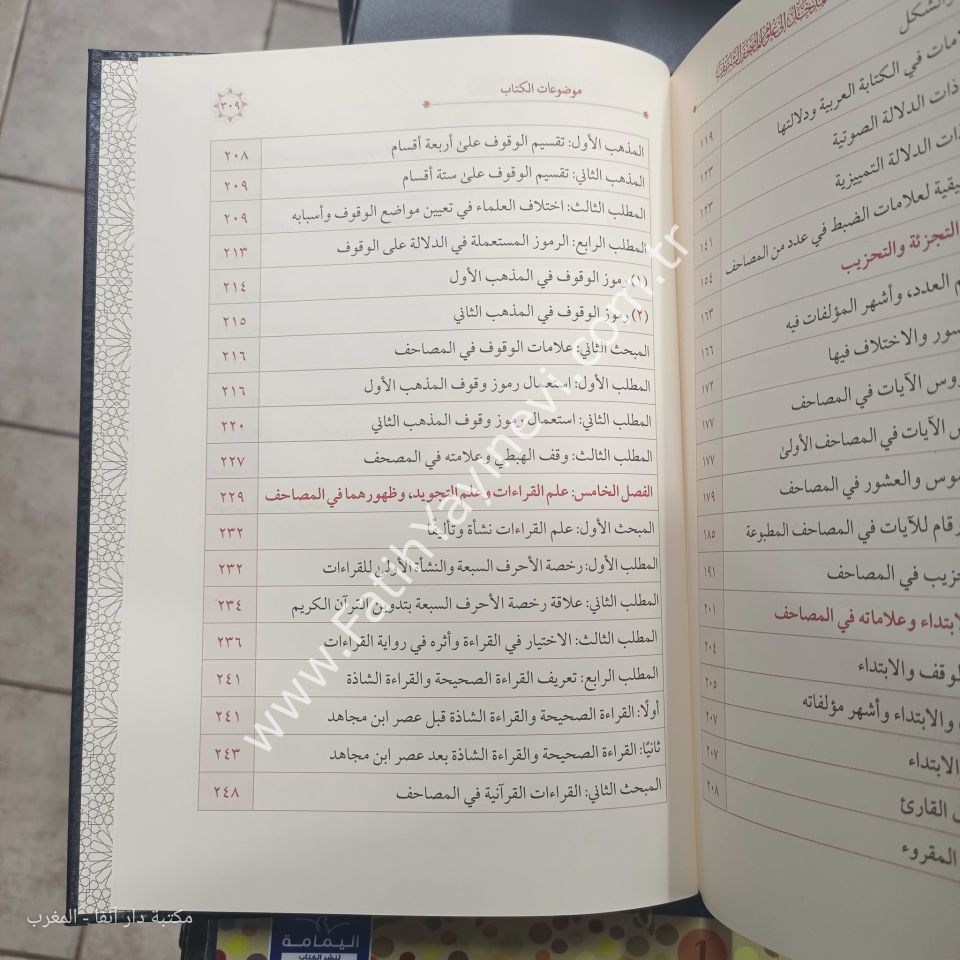 المدخل إلى علوم المصحف الشريف
والشكل
علامات في الكتابة العربية ودلالتها
ذات الدلالة الصوتية ١١٩
ذات الدلالة التمييزية ١٢٣
لعلامات الضبط في عدد من المصاحف ١٢٣
١٤١
التجزئة والتحزيب ١٥٤
العدد، وأشهر المؤلفات فيه ١٦٣
والاختلاف فيها ١٦٦
رؤوس الآيات في المصاحف ١٧٢
الآيات في المصاحف الأولىٰ ١٧٧
١٧٧
والعشور في المصاحف ١٧٩
للآيات في المصاحف المطبوعة ١٨٥
في المصاحف ١٩١
وعلاماته في المصاحف ٢٠١
الوقف والابتداء ٢٠٤
والابتداء وأشهر مؤلفاته ٢٠٥
٢٠٧
الابتداء ٢٠٧
القارئ ٢٠٨
المقروء
موضوعات الكتاب
٣٠٩
المذهب الأول: تقسيم الوقوف علىٰ أربعة أقسام ٢٠٨
المذهب الثاني: تقسيم الوقوف علىٰ ستة أقسام ٢٠٩
المطلب الثالث: اختلاف العلماء في تعيين مواضع الوقوف وأسبابه ٢٠٩
المطلب الرابع: الرموز المستعملة في الدلالة على الوقوف ٢١٣
(١) رموز الوقوف في المذهب الأول ٢١٤
(٢) رموز الوقوف في المذهب الثاني ٢١٥
المبحث الثاني: علامات الوقوف في المصاحف ٢١٦
المطلب الأول: استعمال رموز وقوف المذهب الأول ٢١٦
المطلب الثاني: استعمال رموز وقوف المذهب الثاني ٢٢٠
المطلب الثالث: وقف الهبطي وعلامته في المصحف ٢٢٧
الفصل الخامس: علم القراءات وعلم التجويد، وظهورهما في المصاحف ٢٢٩
المبحث الأول: علم القراءات نشأة وتأليفًا ٢٣٢
المطلب الأول: رخصة الأحرف السبعة والنشأة الأولىٰ للقراءات ٢٣٢
المطلب الثاني: علاقة رخصة الأحرف السبعة بتدوين القرآن الكريم ٢٣٤
المطلب الثالث: الاختيار في القراءة وأثره في رواية القراءات ٢٣٦
المطلب الرابع: تعريف القراءة الصحيحة والقراءة الشاذة ٢٤١
أولًا: القراءة الصحيحة والقراءة الشاذة قبل عصر ابن مجاهد ٢٤١
ثانيًا: القراءة الصحيحة والقراءة الشاذة بعد عصر ابن مجاهد ٢٤٣
المبحث الثاني: القراءات القرآنية في المصاحف ٢٤٨
www.FatihYayinevi.com.tr
مكتبة دار آنفا - المغرب
اليمامة
لنشر الكتاب
1